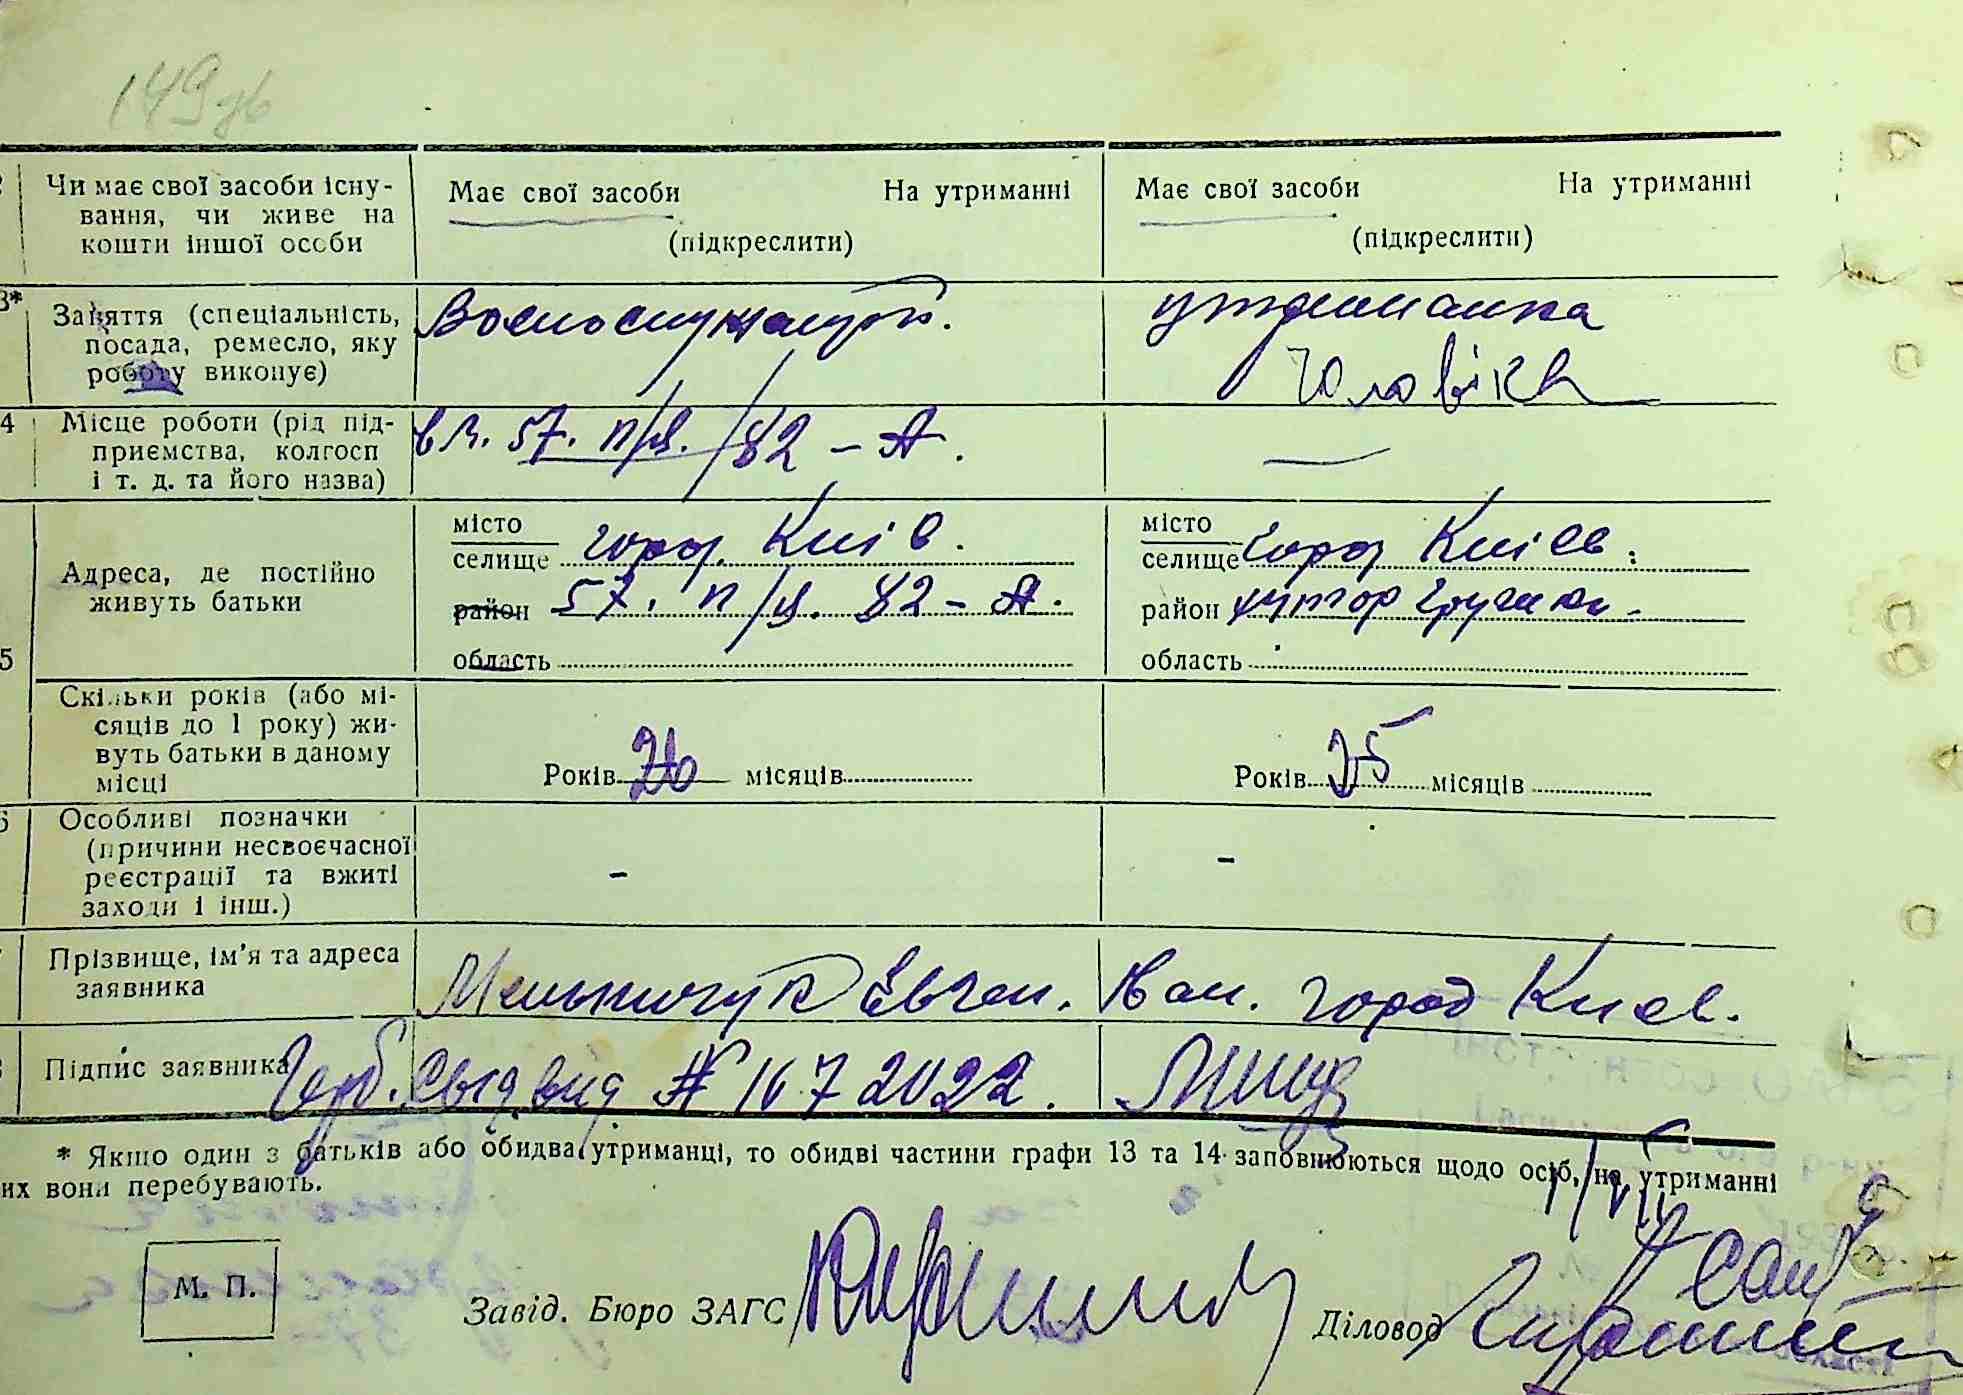 149 зв
Чи має свої засоби існу-
вання, чи живе на
кошти іншої особи
Має свої засоби На утриманні
(підкреслити)
Має свої засоби На утриманні
(підкреслити)
3* Заняття (спеціальність,
посада, ремесло, яку
роботу виконує)
Военнослужащий.
утриманка
чоловіка
4 Місце роботи (рід під-
приємства, колгосп
і т. д. та його назва)
57. п/я. 82-А.
—
5 Адреса, де постійно
живуть батьки
місто
селище город. Київ.
район 57. п/я. 82-А.
область
місто
селище город Київ.
район хутор
область
Скільки років (або мі-
сяців до 1 року) жи-
вуть батьки в даному
місці
Років 26 місяців
Років 25 місяців
6 Особливі позначки
(причини несвоєчасної
реєстрації та вжиті
заходи і інш.)
-
-
Прізвище, ім'я та адреса
заявника
Мельничук Евген. Ван. город Киев.
Підпис заявника
свидвид № 1672022.
* Якшо один з батьків або обидва утриманці, то обидві частини графи 13 та 14 заповнюються щодо осіб, на утриманні
их вони перебувають.
М. П.
Завід. Бюро ЗАГС
Діловод